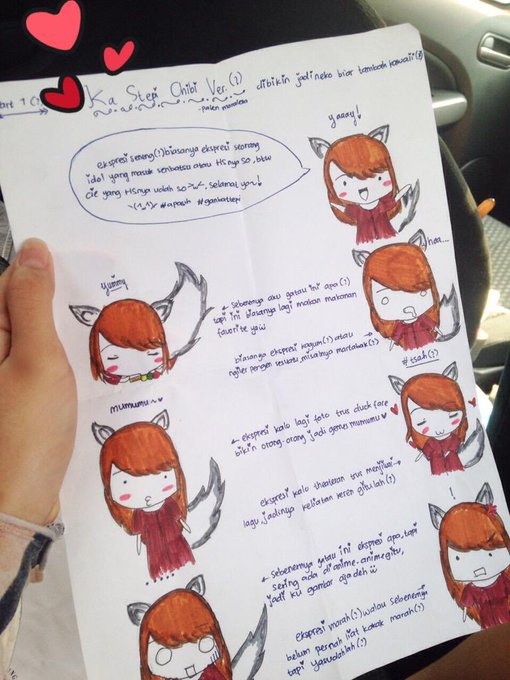 art 1 (?)
Ka Stepi Chibi Ver.(?)
dibikin jadi neko biar tambah kawaii(?)
yaaay!
ekspresi seneng(?) biasanya ekspresi seorang
idol yang masuk senbatsu atau HSnya so, btw
cie yang HSnya udah so >~<, selamat ya~!
\(^_^)/ #apasih #ganbattepi
yummy
haa...
← sebenernya aku gatau ini apa(?)
tapi ini biasanya lagi makan makanan
favorite yaw
biasanya ekspresi kagum(?) atau →
ngiler pengen sesuatu, misalnya martabak(?)
#tsah(?)
mumumu~♥
← ekspresi kalo lagi foto trus duck face
bikin orang-orang jadi gemes mumumu♥
ekspresi kalo theateran trus menjiwai →
lagu, jadinya keliatan keren gitulah(?)
!
← sebenernya gatau ini ekspresi apa, tapi
sering ada di anime-anime gitu,
jadi ku gambar aja deh
ekspresi marah(?) walau sebenernya
belum pernah liat kakak marah(?)
tapi yasudahlah(?)